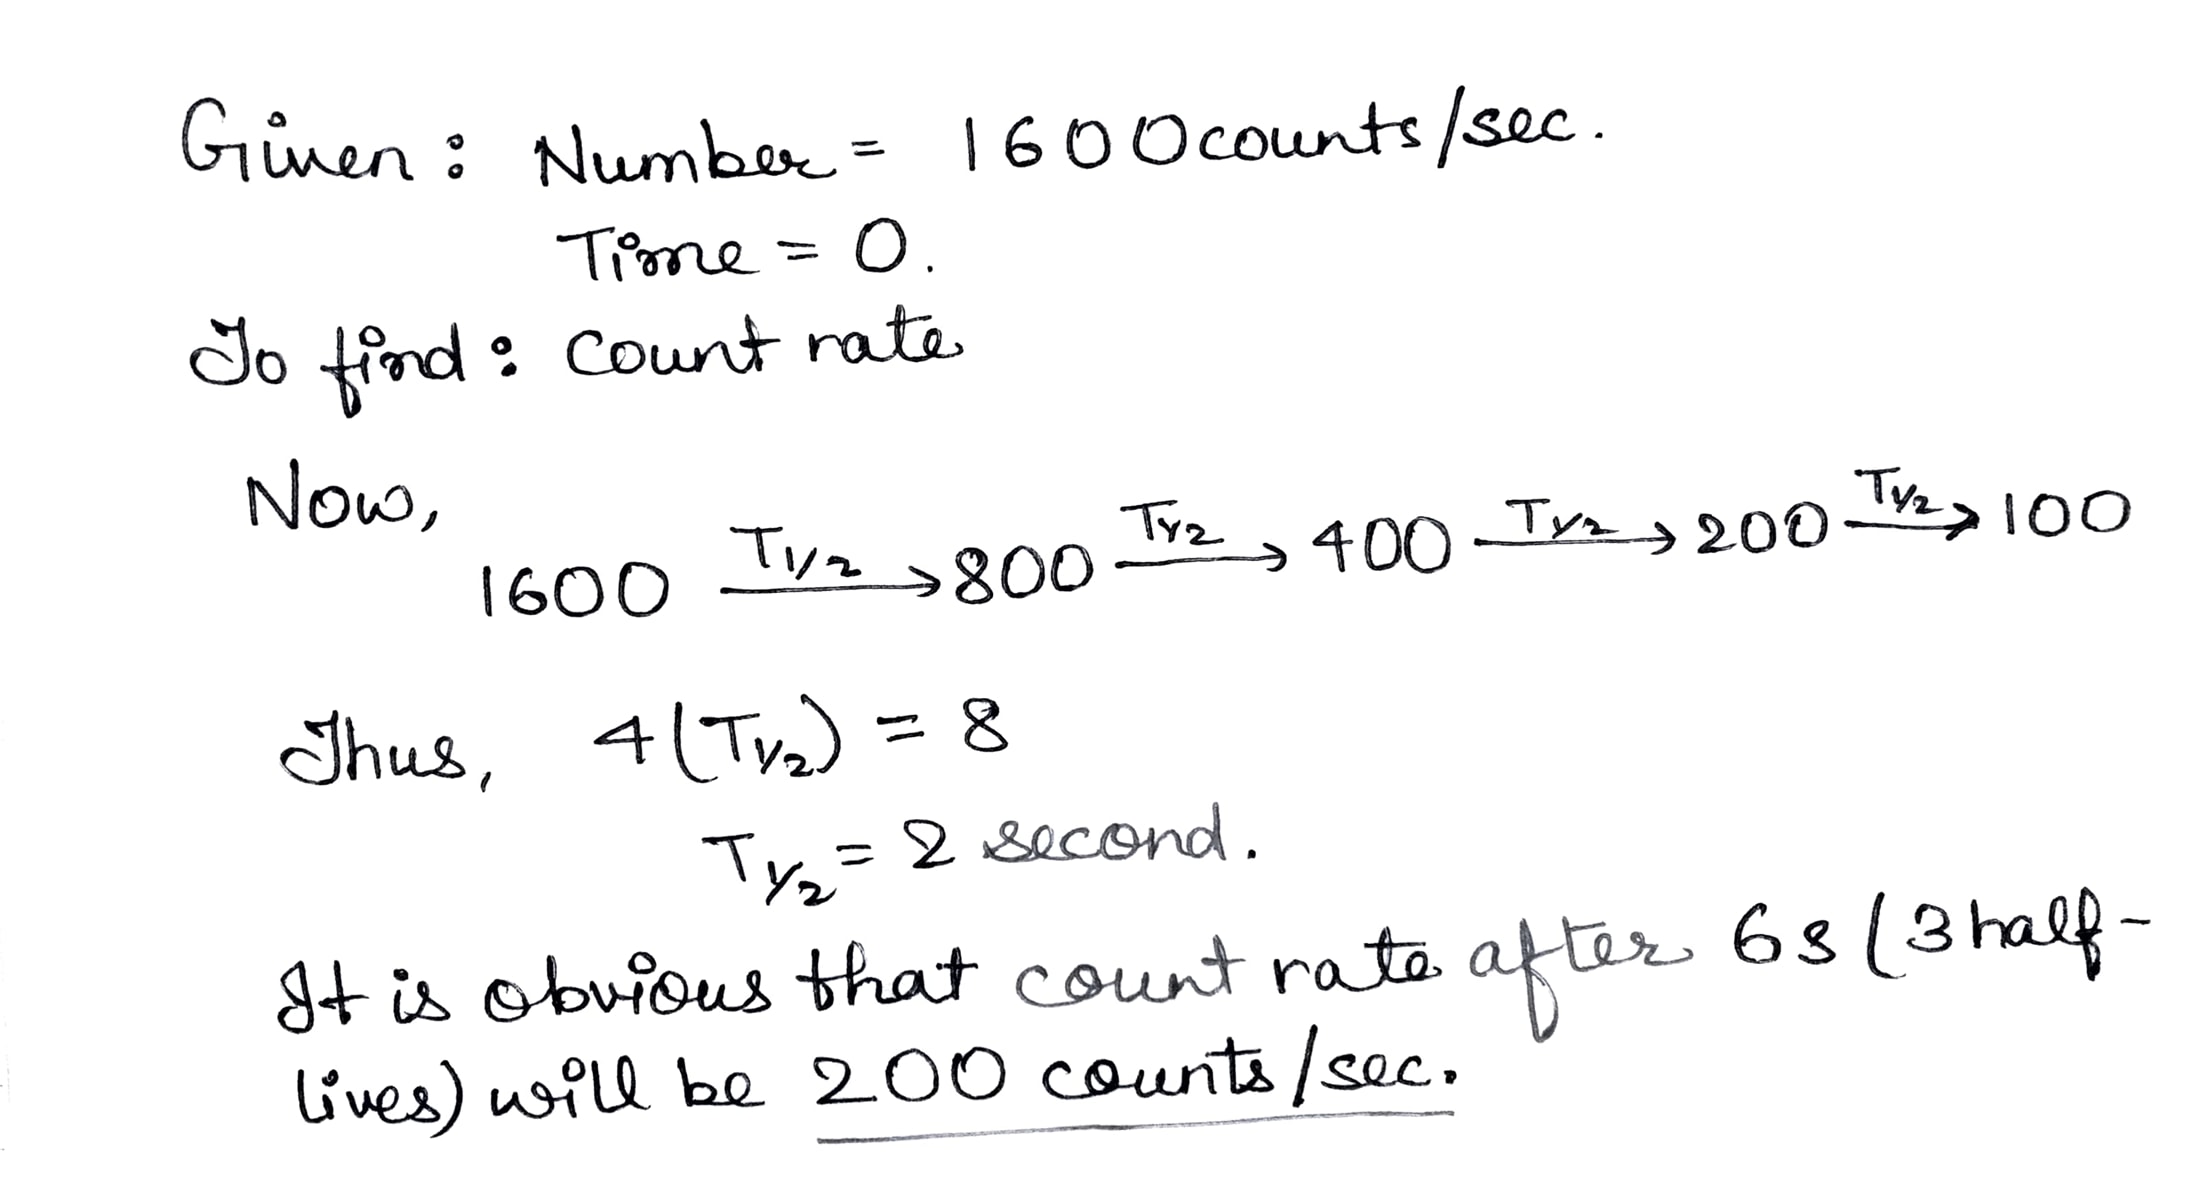 Given : Number = 1600 counts/sec.
Time = 0.
To find : Count rate
Now,
1600 —T1/2→ 800 —T1/2→ 400 —T1/2→ 200 —T1/2→ 100
Thus, 4(T1/2) = 8
T1/2 = 2 second.
It is obvious that count rate after 6s (3 half-
lives) will be 200 counts/sec.